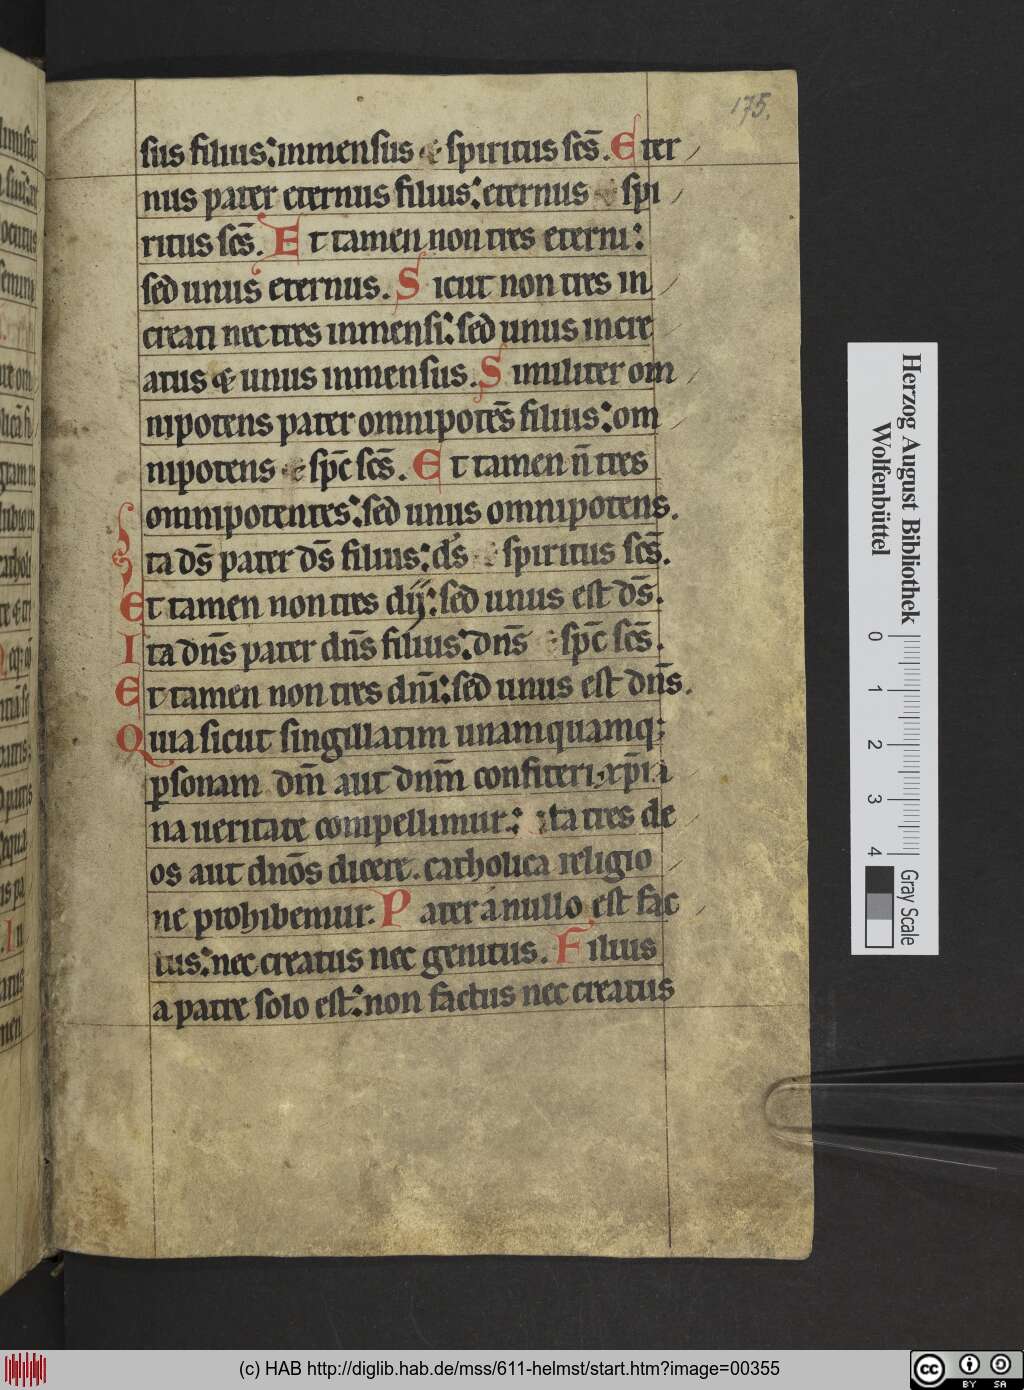 175.
sus filius: inmensus & spiritus scs̄. Eter
nus pater eternus filius: eternus & spi
ritus scs̄. Et tamen non tres eterni:
sed unus eternus. Sicut non tres in
creati nec tres inmensi: sed unus incre
atus & unus inmensus. Similiter om
nipotens pater omnipotēs filius: om
nipotens & spc̄ scs̄. Et tamen n̄ tres
omnipotentes: sed unus omnipotens.
Ita ds̄ pater ds̄ filius: ds̄ & spiritus scs̄.
Et tamen non tres dij: sed unus est ds̄.
Ita dns̄ pater dns̄ filius: dns̄ & spc̄ scs̄.
Et tamen non tres dnī: sed unus est dns̄.
Quia sicut singillatim unamquamq;
ꝑsonam dm̄ aut dnm̄ confiteri xp̄ia
na ueritate compellimur: Ita tres de
os aut dnōs dicere. catholica religio
ne prohibemur. Pater a nullo est fac
tus: nec creatus nec genitus. Filius
a patre solo est: non factus nec creatus
Herzog August Bibliothek
Wolfenbüttel
0 1 2 3 4
Gray Scale
(c) HAB http://diglib.hab.de/mss/611-helmst/start.htm?image=00355
cc BY SA